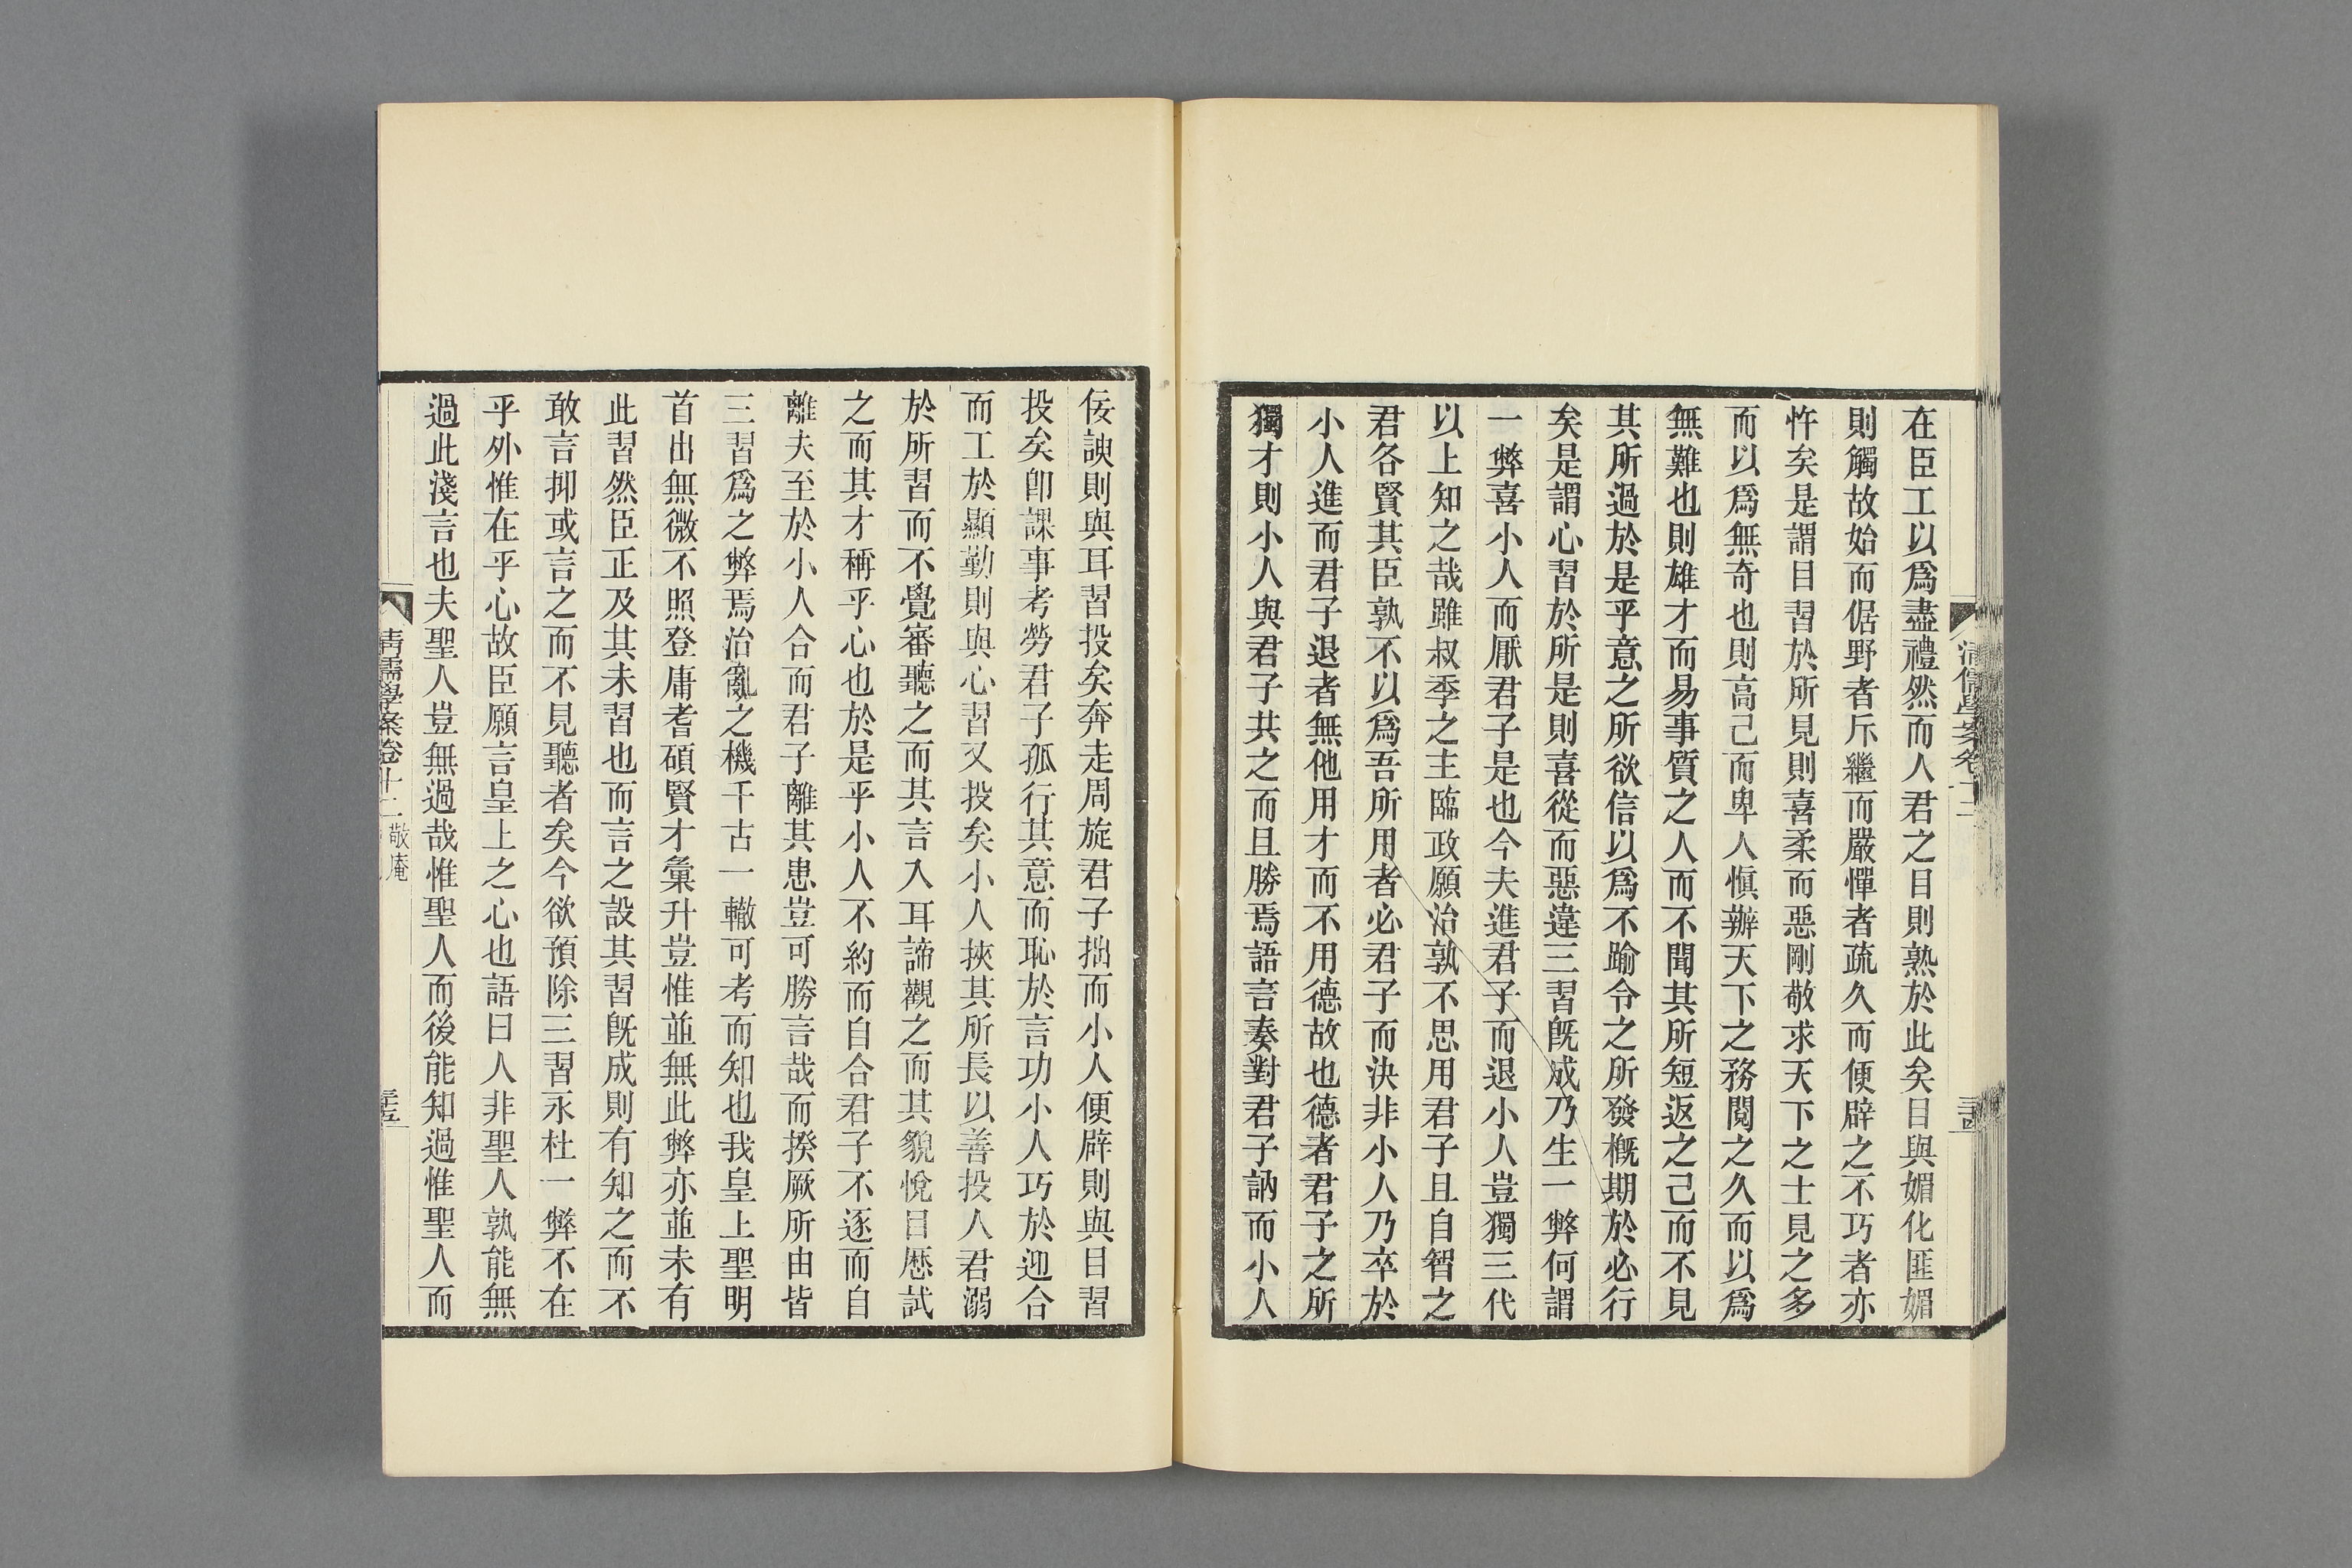 在臣工以爲盡禮然而人君之目則熟於此矣目與媚化匪媚
則觸故始而倨野者斥繼而嚴憚者疏久而便辟之不巧者亦
忤矣是謂目習於所見則喜柔而惡剛敬求天下之士見之多
而以爲無奇也則高己而卑人愼辦天下之務閱之久而以爲
無難也則雄才而易事質之人而不聞其所短返之己而不見
其所過於是乎意之所欲信以爲不踰令之所發槪期於必行
矣是謂心習於所是則喜從而惡違三習旣成乃生一弊何謂
一弊喜小人而厭君子是也今夫進君子而退小人豈獨三代
以上知之哉雖叔季之主臨政願治孰不思用君子且自智之
君各賢其臣孰不以爲吾所用者必君子而決非小人乃卒於
小人進而君子退者無他用才而不用德故也德者君子之所
獨才則小人與君子共之而且勝焉語言奏對君子訥而小人
佞諛則與耳習投矣奔走周旋君子拙而小人便辟則與目習
投矣卽課事考勞君子孤行其意而恥於言功小人巧於迎合
而工於顯勤則與心習又投矣小人挾其所長以善投人君溺
於所習而不覺審聽之而其言入耳諦觀之而其貌悅目歷試
之而其才稱乎心也於是乎小人不約而自合君子不逐而自
離夫至於小人合而君子離其患豈可勝言哉而揆厥所由皆
三習爲之弊焉治亂之機千古一轍可考而知也我皇上聖明
首出無微不照登庸耆碩賢才彙升豈惟並無此弊亦並未有
此習然臣正及其未習也而言之設其習旣成則有知之而不
敢言抑或言之而不見聽者矣今欲預除三習永杜一弊不在
乎外惟在乎心故臣願言皇上之心也語曰人非聖人孰能無
過此淺言也夫聖人豈無過哉惟聖人而後能知過惟聖人而
清儒學案卷十二 敬庵